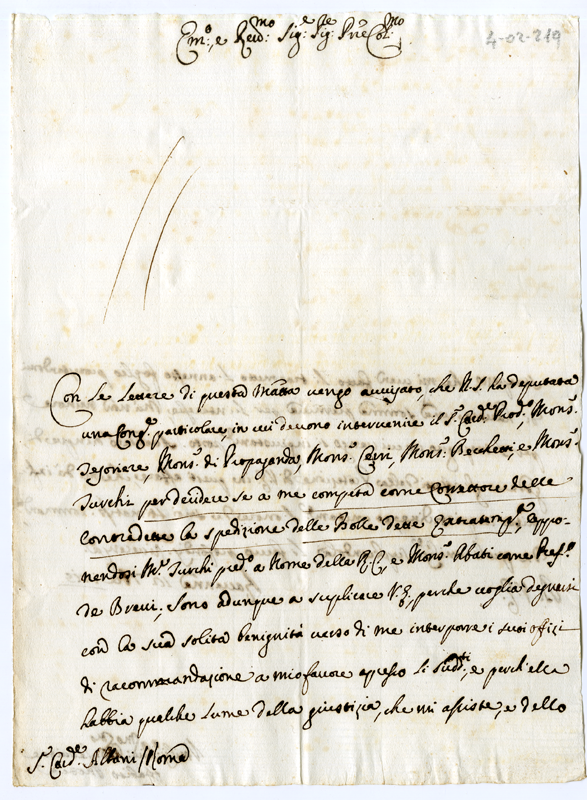 Em.º, e Reud.mo Sig.e Sig.e Prẽ Col.mo
4-02-219
Con le lettere di questa Matta vengo auuisato, che N.S. ha deputata
una Cong.e particolare, in cui deuono interuenire il S.r Card.e Prod.o, Mons.r
Tesoriere, Mons.r di Propaganda, Mons.r Cerri, Mons.r Bechetti, e Mons.r
Turchi per decidere se a me competa come Correttore delle
Contradette la spedizione delle Bolle dette, oppo-
nendosi Mr. Turchi pred.o a Nome della R.C., e Mons.r Abati come Pref.o
de Breui; sono adunque a suplicare V.E., perche voglia degnarsi
con la sua solita benignità verso di me interporre i suoi offizi
di raccommandazione a mio fauore appresso li Sudd.ti, e perch'ella
habbia qualche lume della giustizia, che mi assiste, e dello
S.r Card.e Albani / Roma